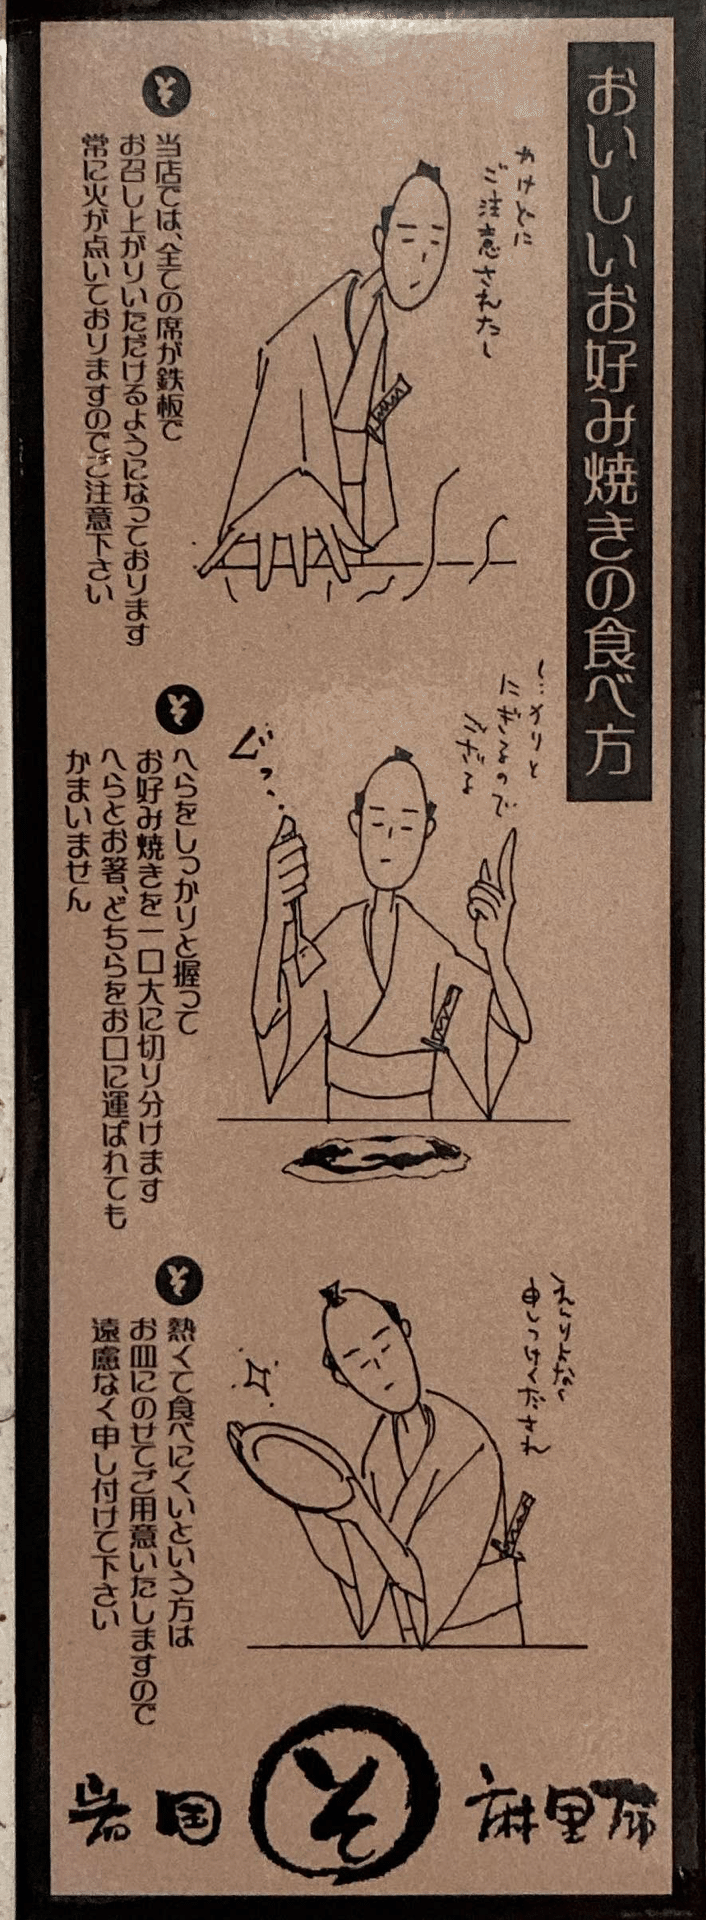 おいしいお好み焼きの食べ方
やけどに
ご注意されたし
そ
当店では、全ての席が鉄板で
お召し上がりいただけるようになっております
常に火が点いておりますのでご注意下さい
しっかりと
にぎるので
ござる
ぐっ
そ
へらをしっかりと握って
お好み焼きを一口大に切り分けます
へらとお箸、どちらをお口に運ばれても
かまいません
えんりょなく
申しつけくだされ
そ
熱くて食べにくいという方は
お皿にのせてご用意いたしますので
遠慮なく申し付けて下さい
麻里布
そ
岩国